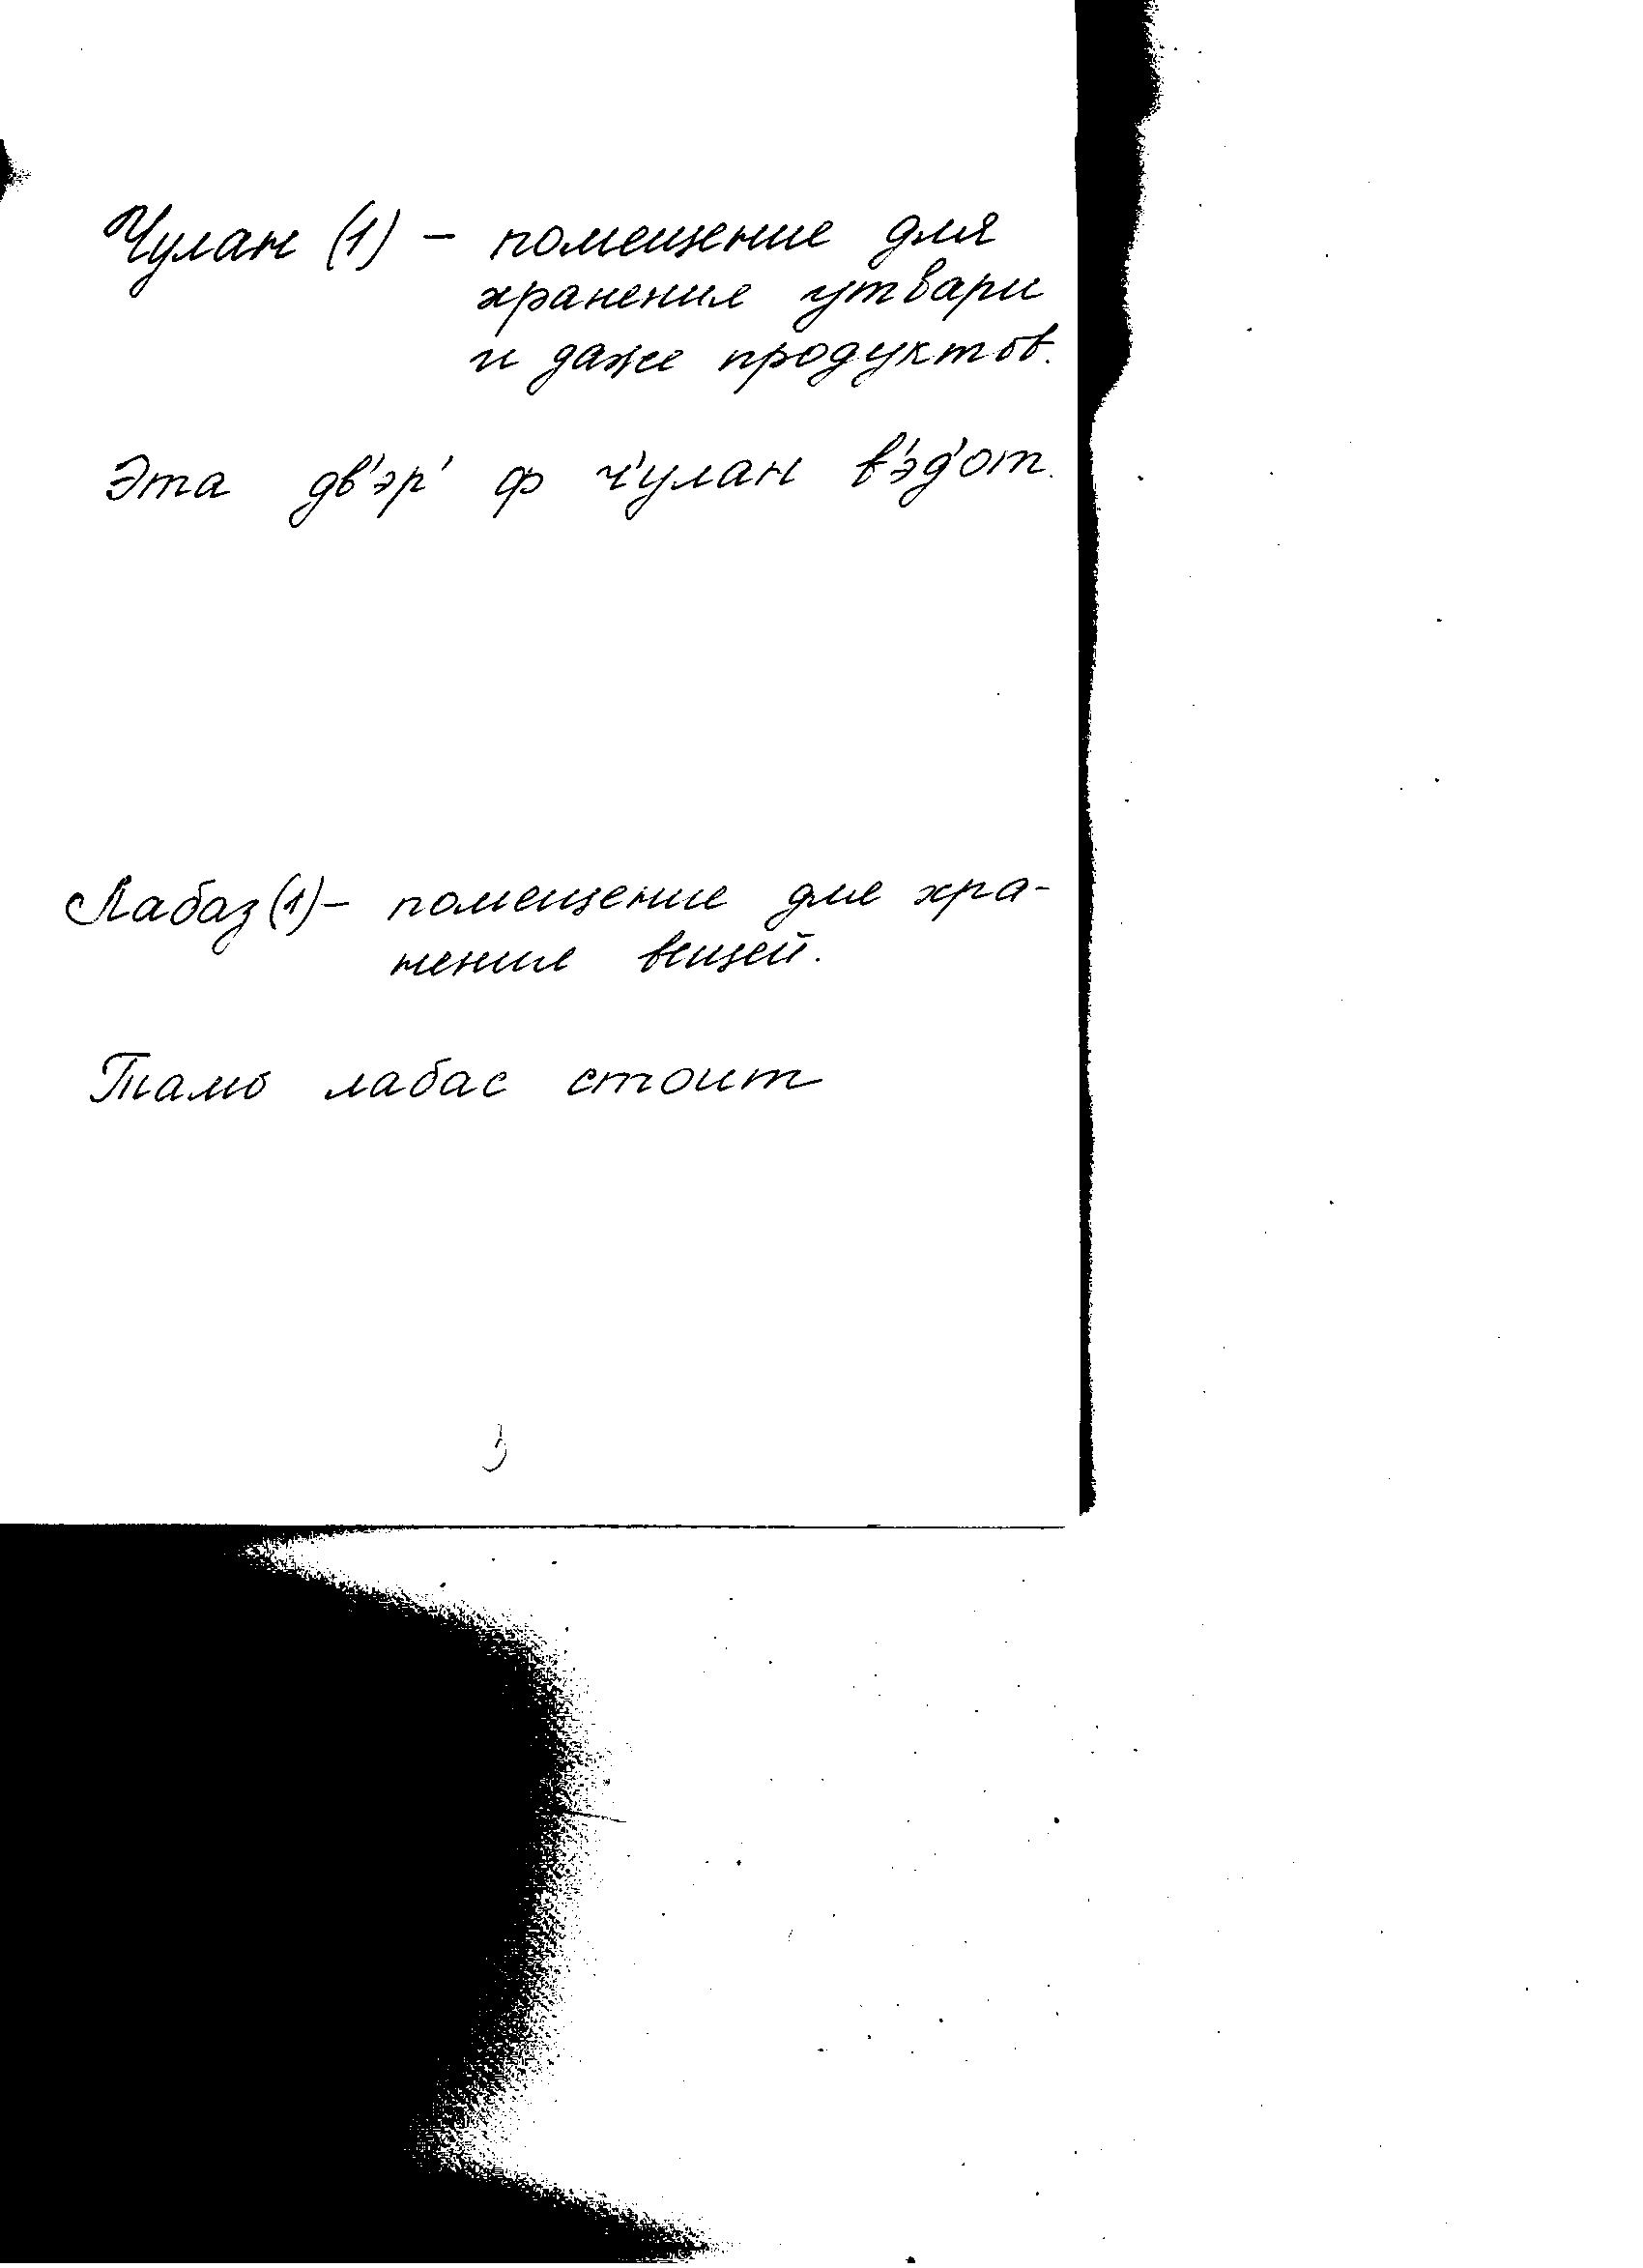 Чулан (1) – помещение для
хранения утвари
и даже продуктов.
Эта дв'эр' ф ч'улан в'эд'от.
Лабаз (1) – помещение для хра-
нения вещей.
Тамо лабас стоит
3